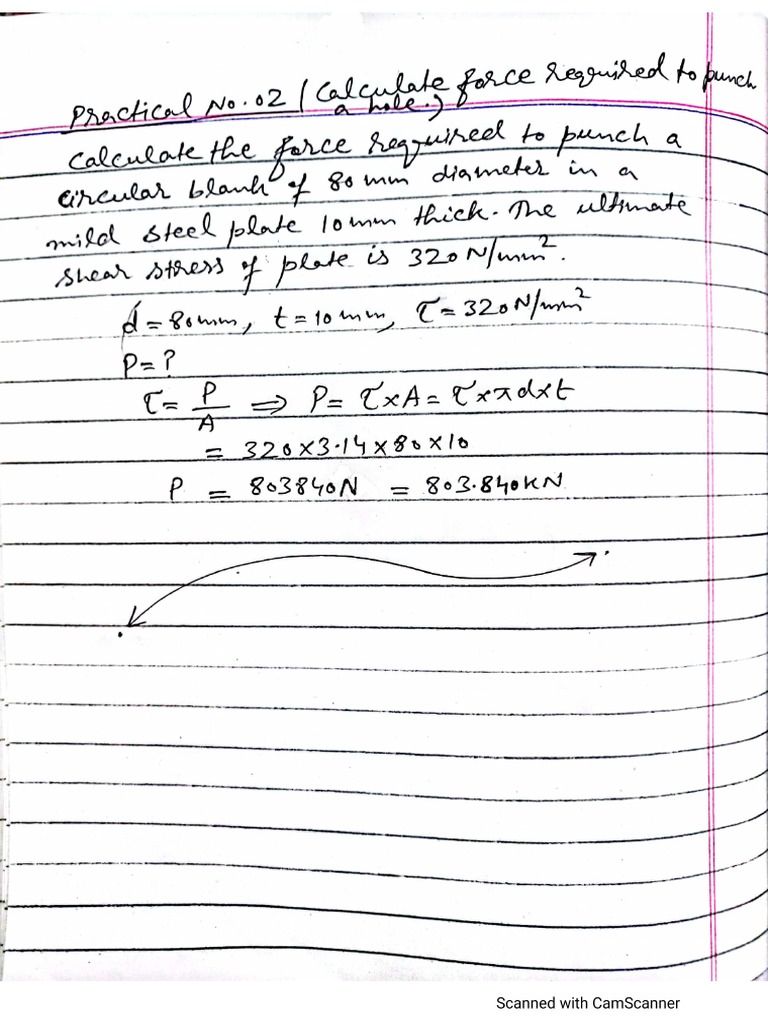 Practical No.02 (Calculate force required to punch
a hole.)
Calculate the force required to punch a
circular blank of 80 mm diameter in a
mild steel plate 10 mm thick. The ultimate
shear stress of plate is 320 N/mm².
d = 80mm, t = 10 mm, τ = 320 N/mm²
P = ?
τ = P/A ⇒ P = τ×A = τ×πd×t
= 320×3.14×80×10
P = 803840N = 803.840KN
Scanned with CamScanner